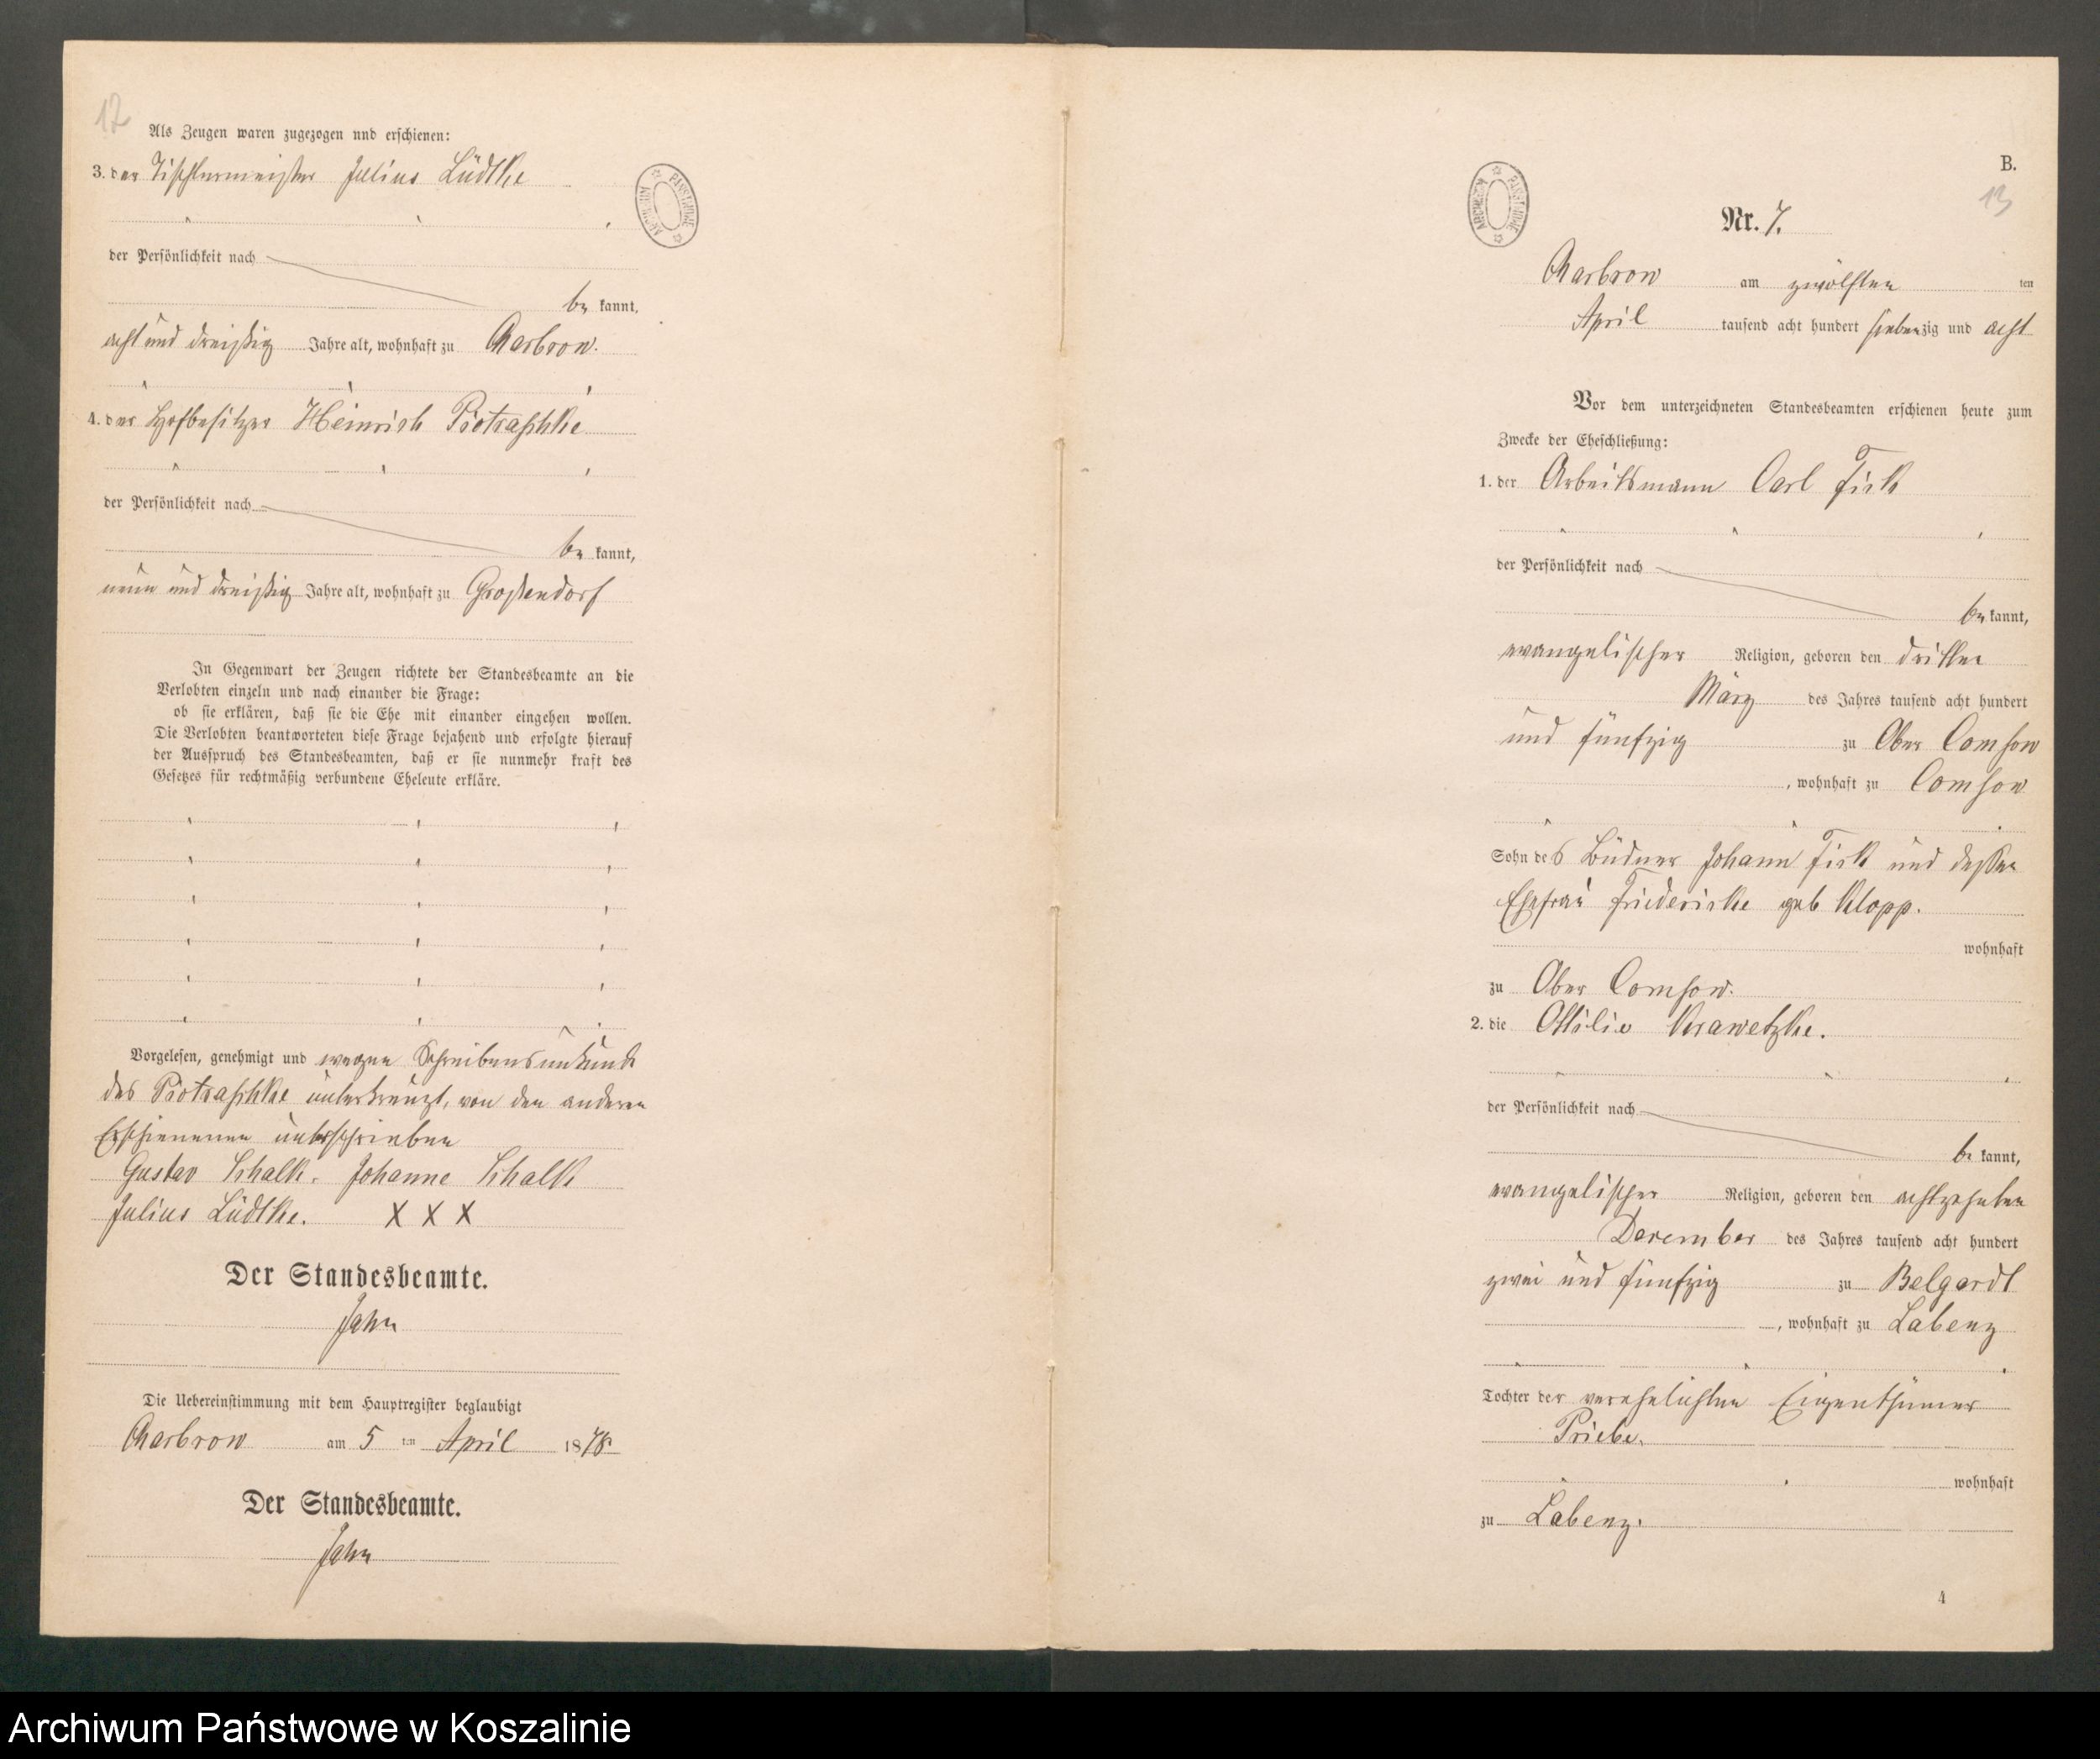 12
Als Zeugen waren zugezogen und erschienen:
3. der Tischlermeister Julius Lüdtke
der Persönlichkeit nach
be kannt,
acht und dreißig Jahre alt, wohnhaft zu Charbrow.
4. der Hofbesitzer Heinrich Piotraschke
der Persönlichkeit nach
be kannt,
neun und dreißig Jahre alt, wohnhaft zu Großendorf
In Gegenwart der Zeugen richtete der Standesbeamte an die
Verlobten einzeln und nach einander die Frage:
ob sie erklären, daß sie die Ehe mit einander eingehen wollen.
Die Verlobten beantworteten diese Frage bejahend und erfolgte hierauf
der Ausspruch des Standesbeamten, daß er sie nunmehr kraft des
Gesetzes für rechtmäßig verbundene Eheleute erkläre.
Vorgelesen, genehmigt und wegen Schreibensunkunde
des Piotraschke unterkreuzt, von den anderen
Erschienenen unterschrieben
Gustav Schalk. Johanne Schalk
Julius Lüdtke. X X X
Der Standesbeamte.
Jahn
Die Uebereinstimmung mit dem Hauptregister beglaubigt
Charbrow am 5 ten April 1878
Der Standesbeamte.
Jahn
ARCHIWUM PAŃSTWOWE
ARCHIWUM PAŃSTWOWE
B.
13
Nr. 7.
Charbrow am zwölften ten
April tausend acht hundert siebenzig und acht
Vor dem unterzeichneten Standesbeamten erschienen heute zum
Zwecke der Eheschließung:
1. der Arbeitsmann Carl Fick
der Persönlichkeit nach
be kannt,
evangelischer Religion, geboren den dritten
März des Jahres tausend acht hundert
und fünfzig zu Ober Comsow
, wohnhaft zu Comsow
Sohn des Büdner Johann Fick und dessen
Ehefrau Friedericke geb Klopp.
wohnhaft
zu Ober Comsow.
2. die Ottilie Krawetzke.
der Persönlichkeit nach
be kannt,
evangelischer Religion, geboren den achtzehnten
Dezember des Jahres tausend acht hundert
zwei und fünfzig zu Belgardt
, wohnhaft zu Labenz
Tochter der verehelichten Eigenthümer
Priebe.
wohnhaft
zu Labenz.
4
Archiwum Państwowe w Koszalinie